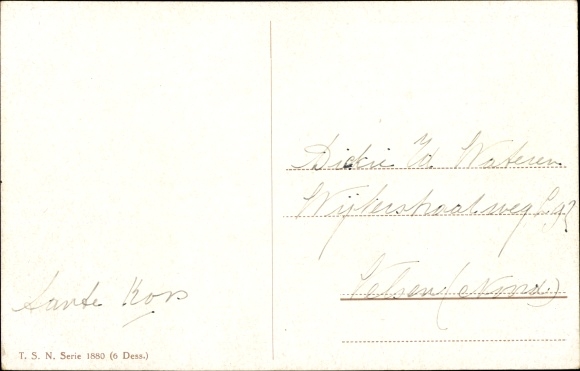 Tante Kors
T. S. N. Serie 1880 (6 Dess.)
Dickie Wateren
Wijkerstraatweg
Velsen (Noord)